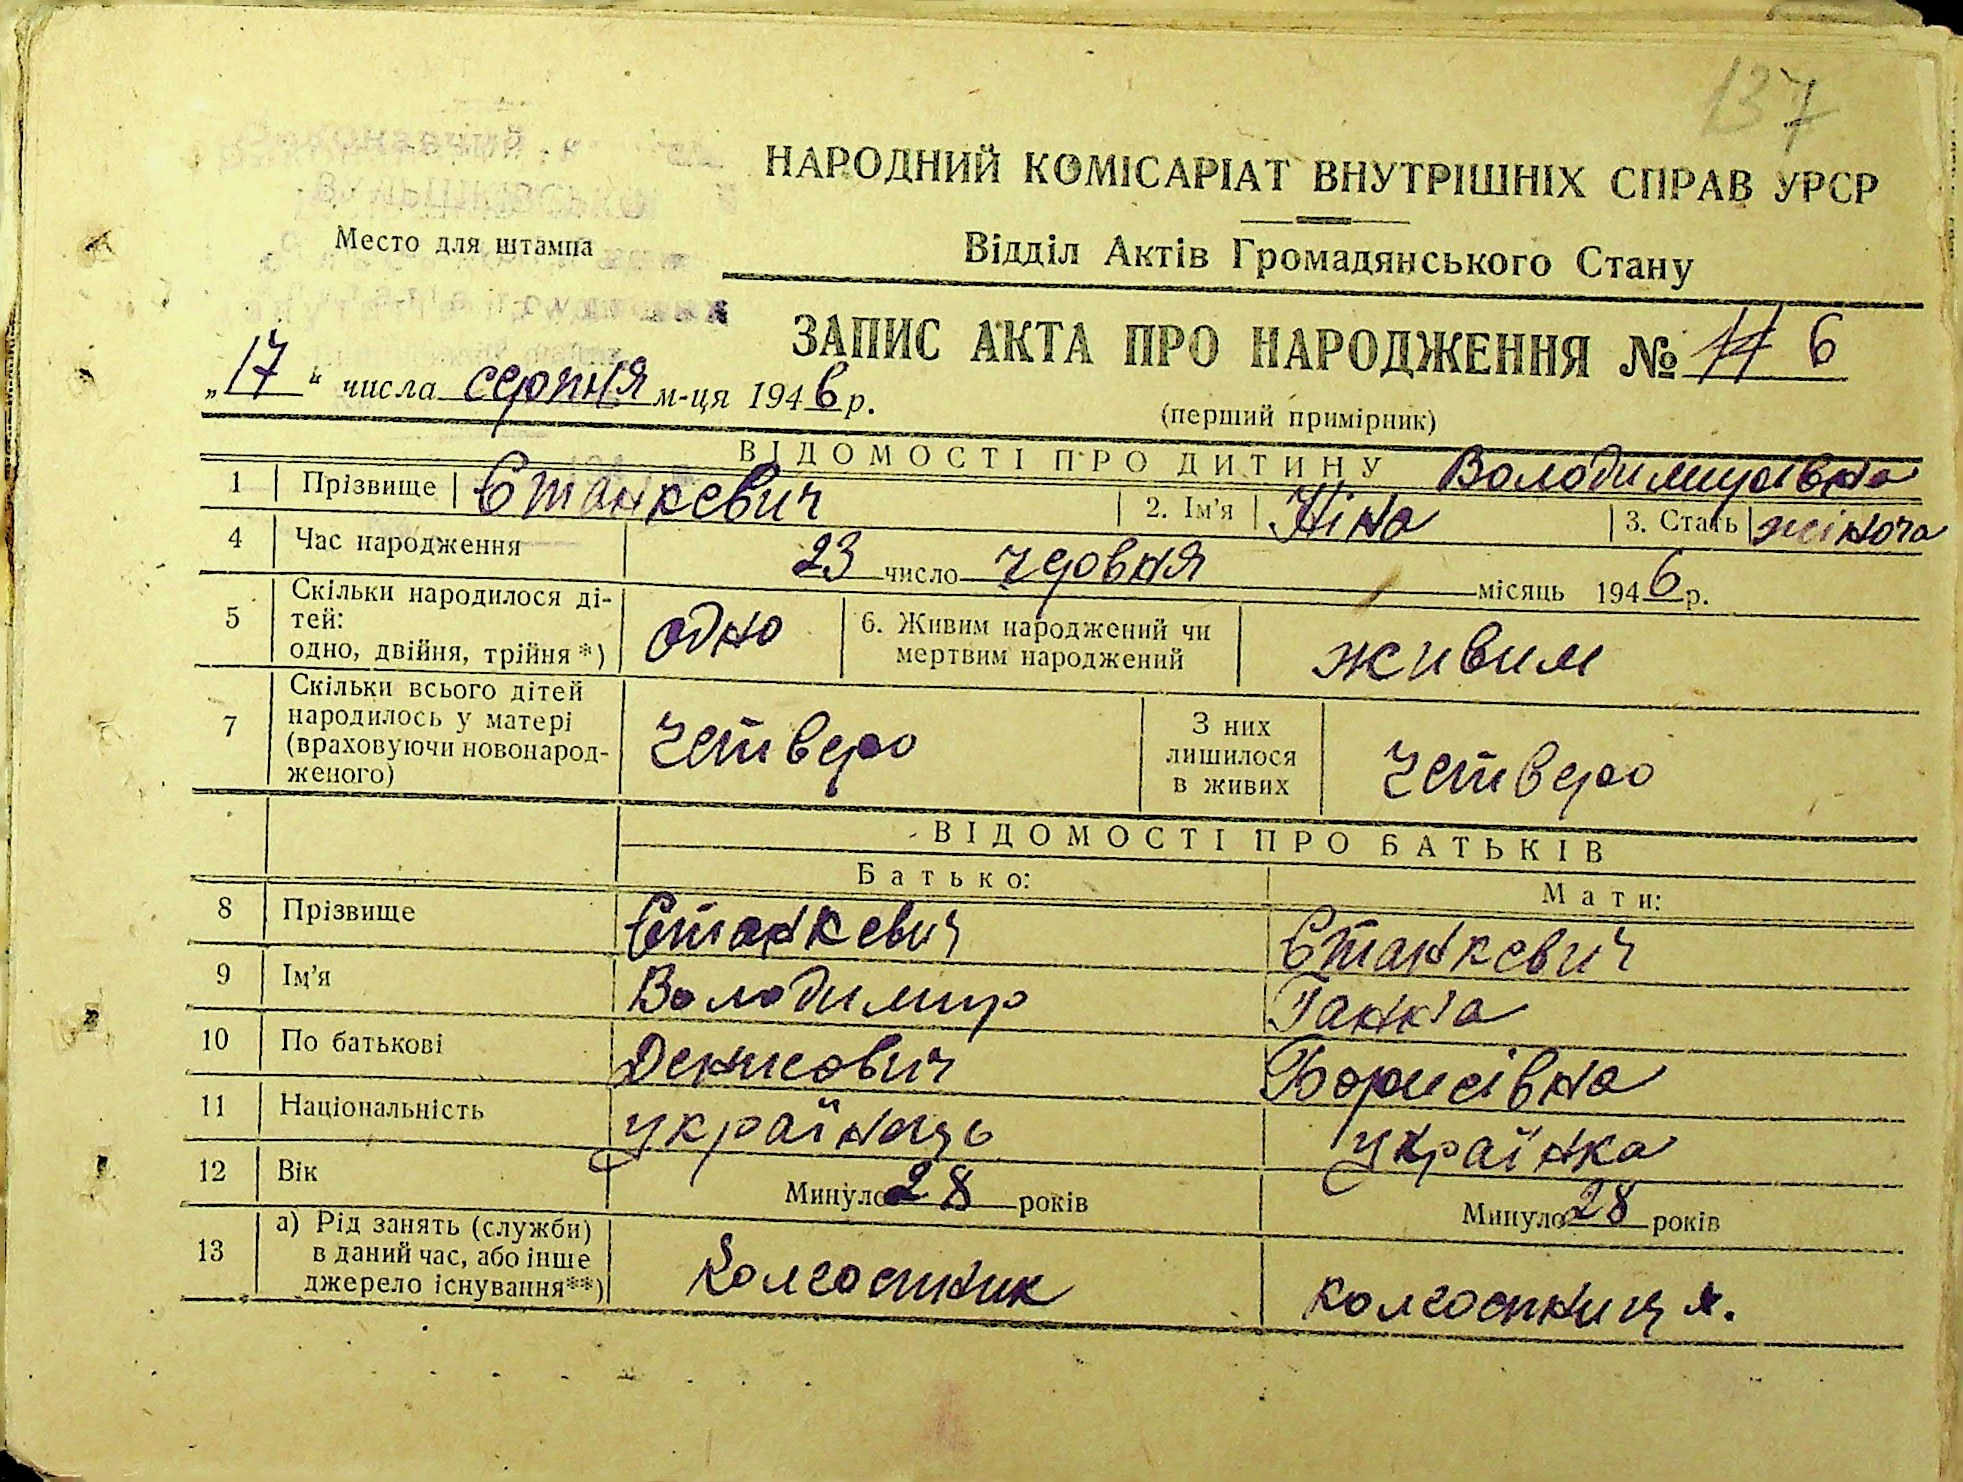 137
НАРОДНИЙ КОМІСАРІАТ ВНУТРІШНІХ СПРАВ УРСР
Место для штампа
Відділ Актів Громадянського Стану
ЗАПИС АКТА ПРО НАРОДЖЕННЯ № 6
„17“ числа серпня м-ця 1946 р.
(перший примірник)
ВІДОМОСТІ ПРО ДИТИНУ Володимирівна
1 Прізвище Станкевич 2. Ім'я Ніна 3. Стать жіноча
4 Час народження 23 число червня місяць 1946 р.
5 Скільки народилося ді-
тей:
одно, двійня, трійня*) одно 6. Живим народжений чи
мертвим народжений живим
7 Скільки всього дітей
народилось у матері
(враховуючи новонарод-
женого) четверо З них
лишилося
в живих четверо
ВІДОМОСТІ ПРО БАТЬКІВ
Батько: Мати:
8 Прізвище Станкевич Станкевич
9 Ім'я Володимир Ганна
10 По батькові Денисович Борисівна
11 Національність українець українка
12 Вік Минуло 28 років Минуло 28 років
13 а) Рід занять (служби)
в даний час, або інше
джерело існування**) Колгоспник колгоспниця.